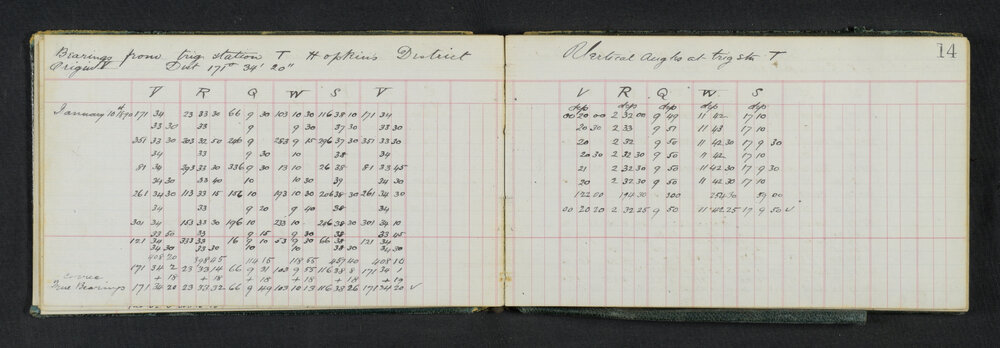 Bearings from trig station T Hopkins District
Origin V Dist 171° 34' 20"
V R Q W S V
January 10th 1890 171 34 23 33 30 66 9 30 103 10 30 116 38 10 171 34
33 30 33 9 9 30 37 30 33 30
351 33 30 203 32 50 246 9 283 9 15 296 37 30 351 33 30
34 33 9 30 10 38 34
81 34 293 33 30 336 9 30 13 10 26 38 81 33 45
34 30 33 40 10 10 30 39 34 30
261 34 30 113 33 15 156 10 193 10 30 206 38 30 261 34 30
34 33 9 20 9 40 38 34
301 34 153 33 30 196 10 233 10 246 38 30 301 34
33 50 33 9 15 9 30 38 33 45
121 34 333 33 16 9 10 53 9 30 66 38 121 34
34 30 33 30 10 10 38 30 34 30
408 20 398 45 114 15 118 55 457 40 408 10
171 34 2 23 33 14 66 9 31 103 9 55 116 38 8 171 34 1
correc + 18 + 18 + 18 + 18 + 18 + 19
True Bearings 171 34 20 23 33 32 66 9 49 103 10 13 116 38 26 171 34 20 v
14
Vertical Angles at trig stn T
V R Q W S
dep dep dep dep
00 20 00 2 32 00 9 49 11 42 17 10
20 30 2 33 9 51 11 43 17 10
20 2 32 9 50 11 42 30 17 9 30
20 30 2 32 30 9 50 11 42 17 10
21 2 32 30 9 50 11 42 30 17 9 30
20 2 32 30 9 50 11 42 30 17 10
122 00 194 30 300 254 30 59 00
00 20 20 2 32 25 9 50 11 42 25 17 9 50 v